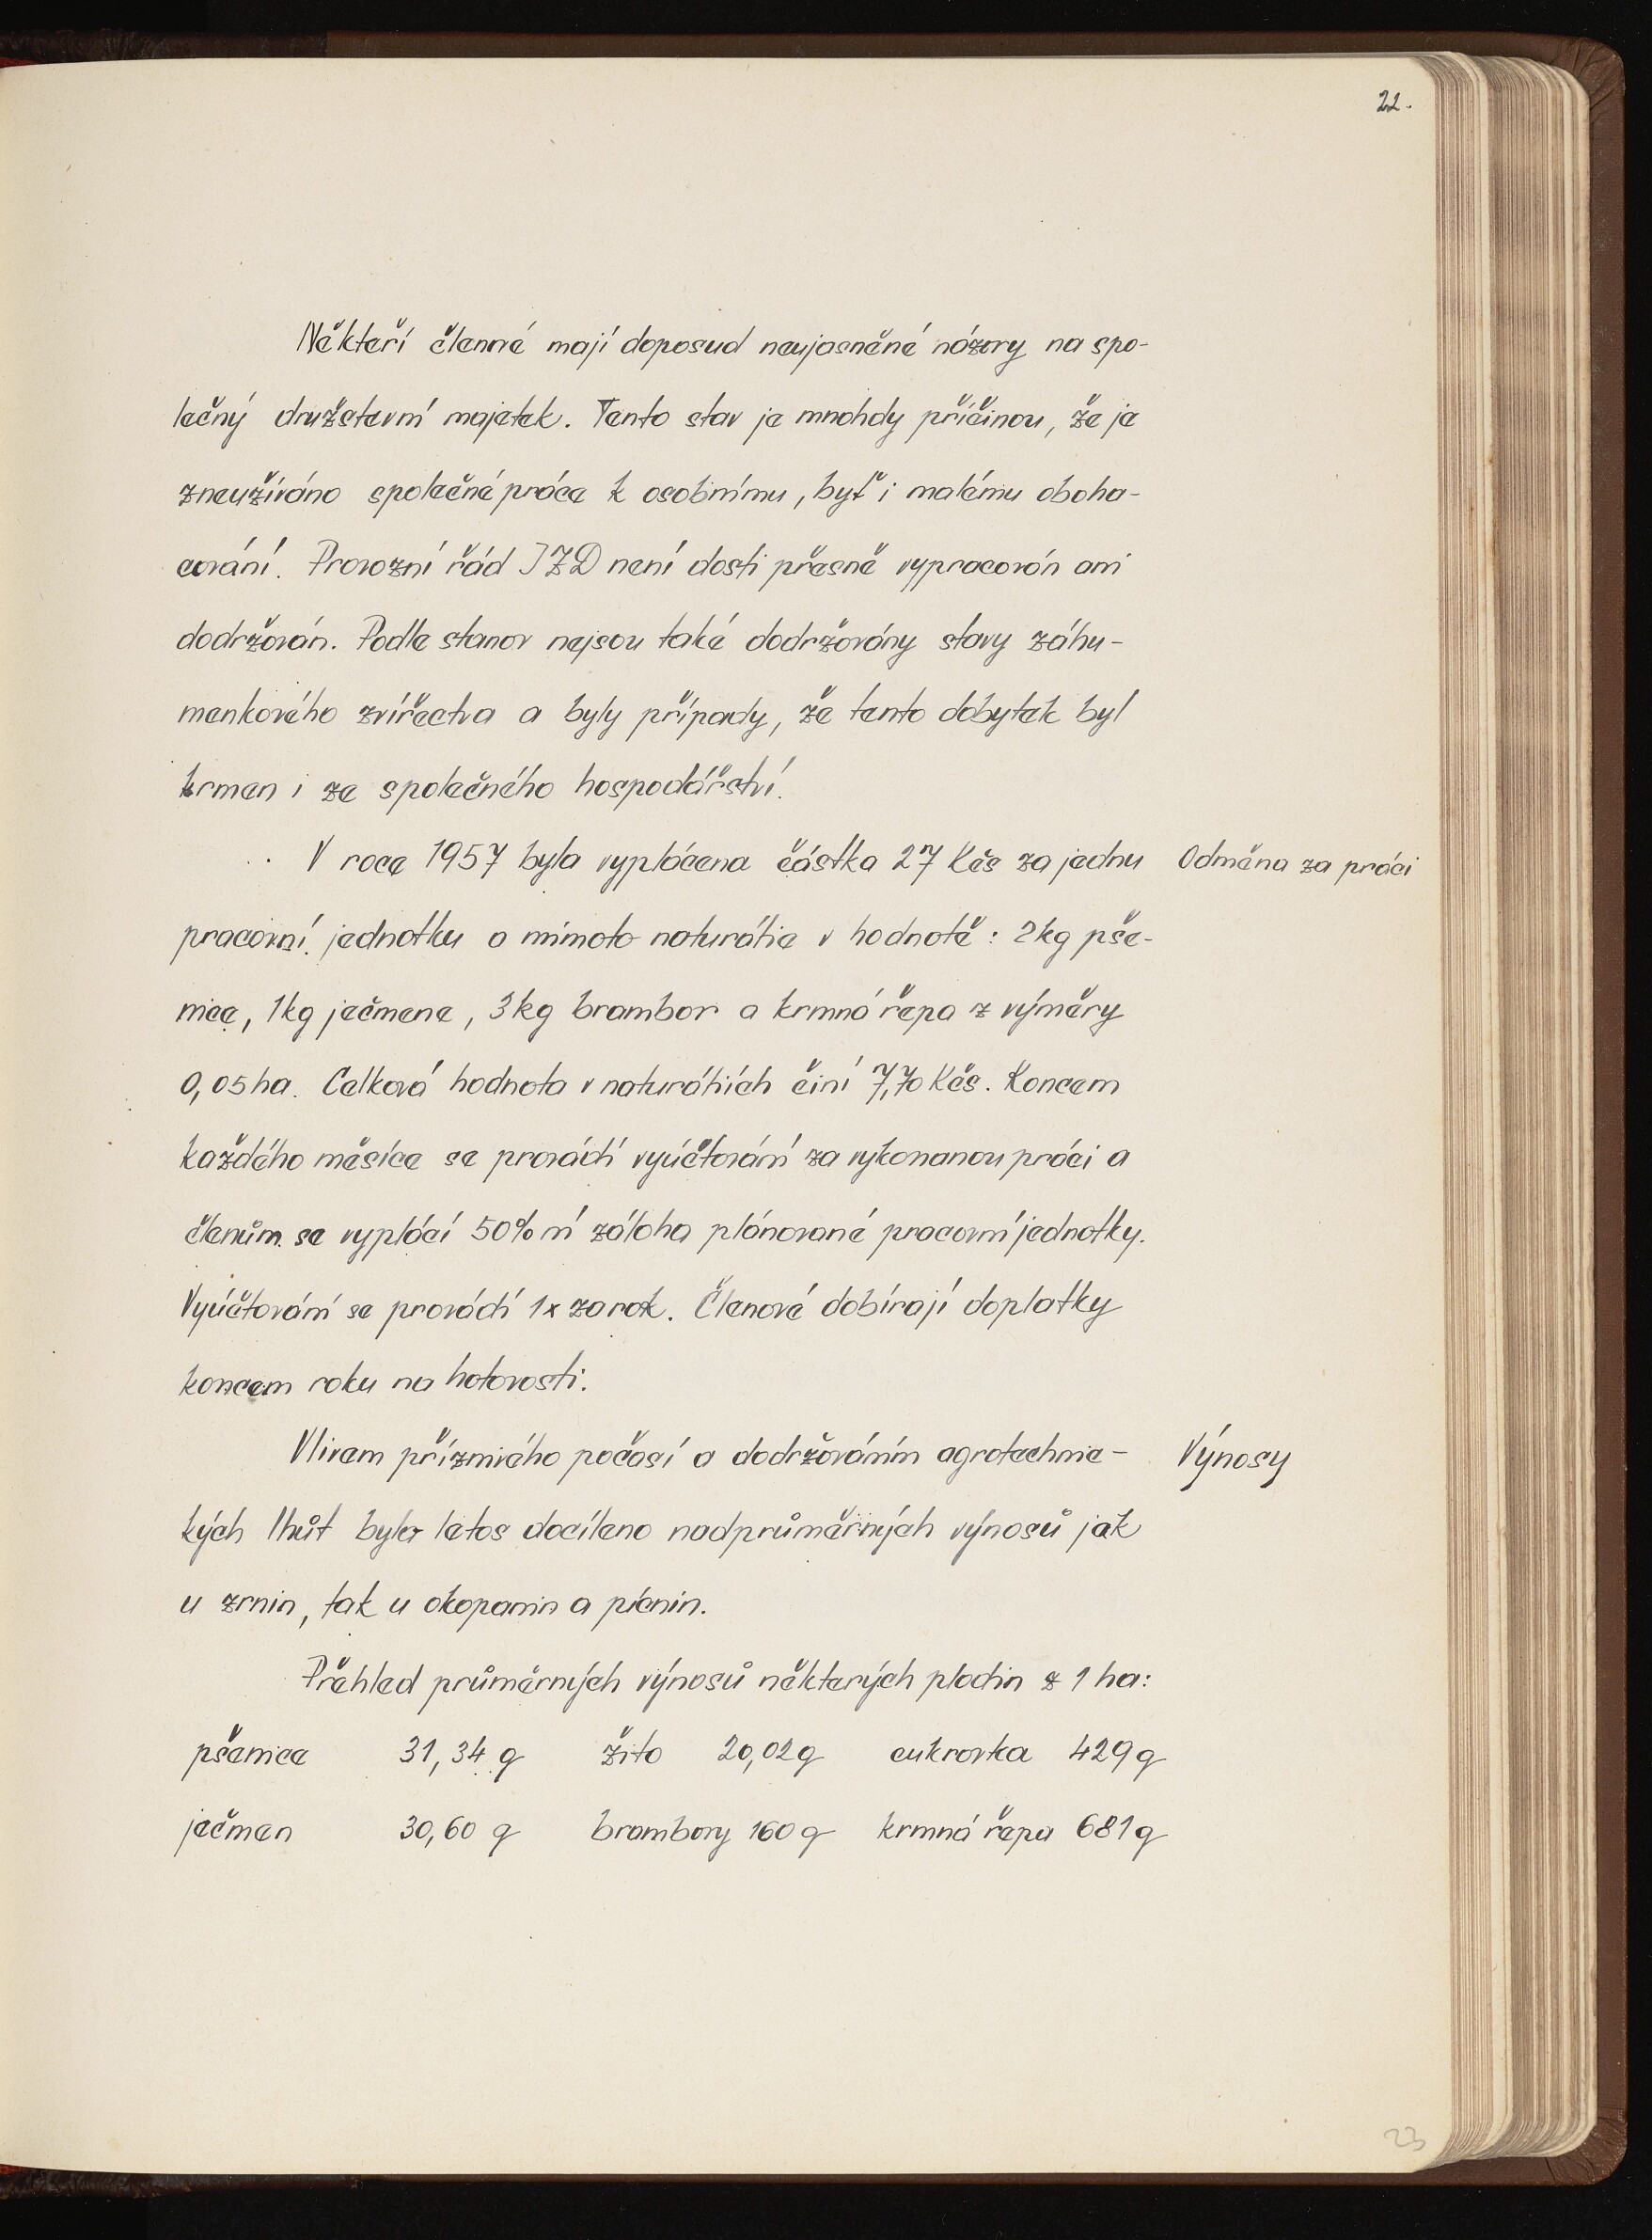 22.
Někteří členové mají doposud neujasněné názory na spo-
lečný družstevní majetek. Tento stav je mnohdy příčinou, že je
zneužíváno společné práce k osobnímu, byť i malému oboha-
cování. Provozní řád JZD není dosti přesně vypracován ani
dodržován. Podle stanov nejsou také dodržovány stavy záhu-
menkového zvířectva a byly případy, že tento dobytek byl
krmen i ze společného hospodářství.
V roce 1957 byla vyplácena částka 27 Kčs za jednu
Odměna za práci
pracovní jednotku a mimoto naturálie v hodnotě: 2kg pše-
nice, 1kg ječmene, 3kg brambor a krmná řepa z výměry
0,05 ha. Celková hodnota v naturáliích činí 7,70 Kčs. Koncem
každého měsíce se provádí vyúčtování za vykonanou práci a
členům se vyplácí 50% ní záloha plánované pracovní jednotky.
Vyúčtování se provádí 1x za rok. Členové dobírají doplatky
koncem roku na hotovosti.
Vlivem příznivého počasí a dodržováním agrotechnic-
Výnosy
kých lhůt bylo letos docíleno nadprůměrných výnosů jak
u zrnin, tak u okopanin a pícnin.
Přehled průměrných výnosů některých plodin z 1 ha:
pšenice 31,34 q žito 20,02 q cukrovka 429 q
ječmen 30,60 q brambory 160 q krmná řepa 681 q
23